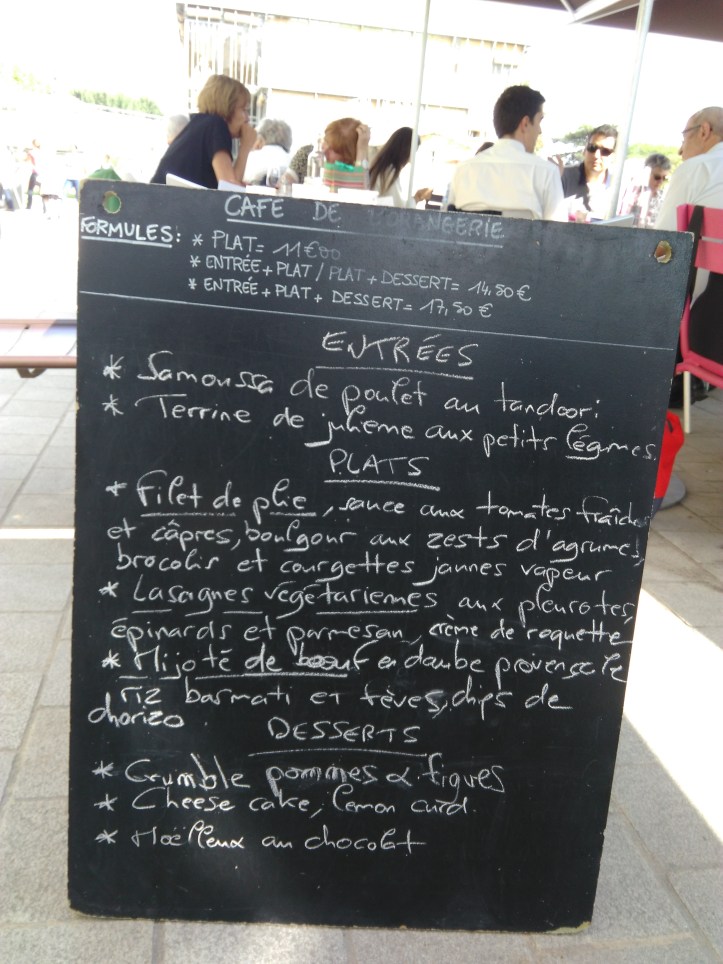 CAFE DE L'ORANGERIE
FORMULES: * PLAT = 11€00
* ENTRÉE + PLAT / PLAT + DESSERT = 14,50€
* ENTRÉE + PLAT + DESSERT = 17,50€
ENTRÉES
* Samoussa de poulet au tandoori
* Terrine de julienne aux petits légumes
PLATS
* Filet de plie, sauce aux tomates fraîches
et câpres, boulgour aux zests d'agrumes,
brocolis et courgettes jaunes vapeur
* Lasagnes végétariennes aux pleurotes,
épinards et parmesan, crème de roquette
* Mijoté de boeuf en daube provençale
riz basmati et fèves, chips de
chorizo
DESSERTS
* Crumble pommes & figues
* Cheese cake, lemon curd.
* Moëlleux au chocolat